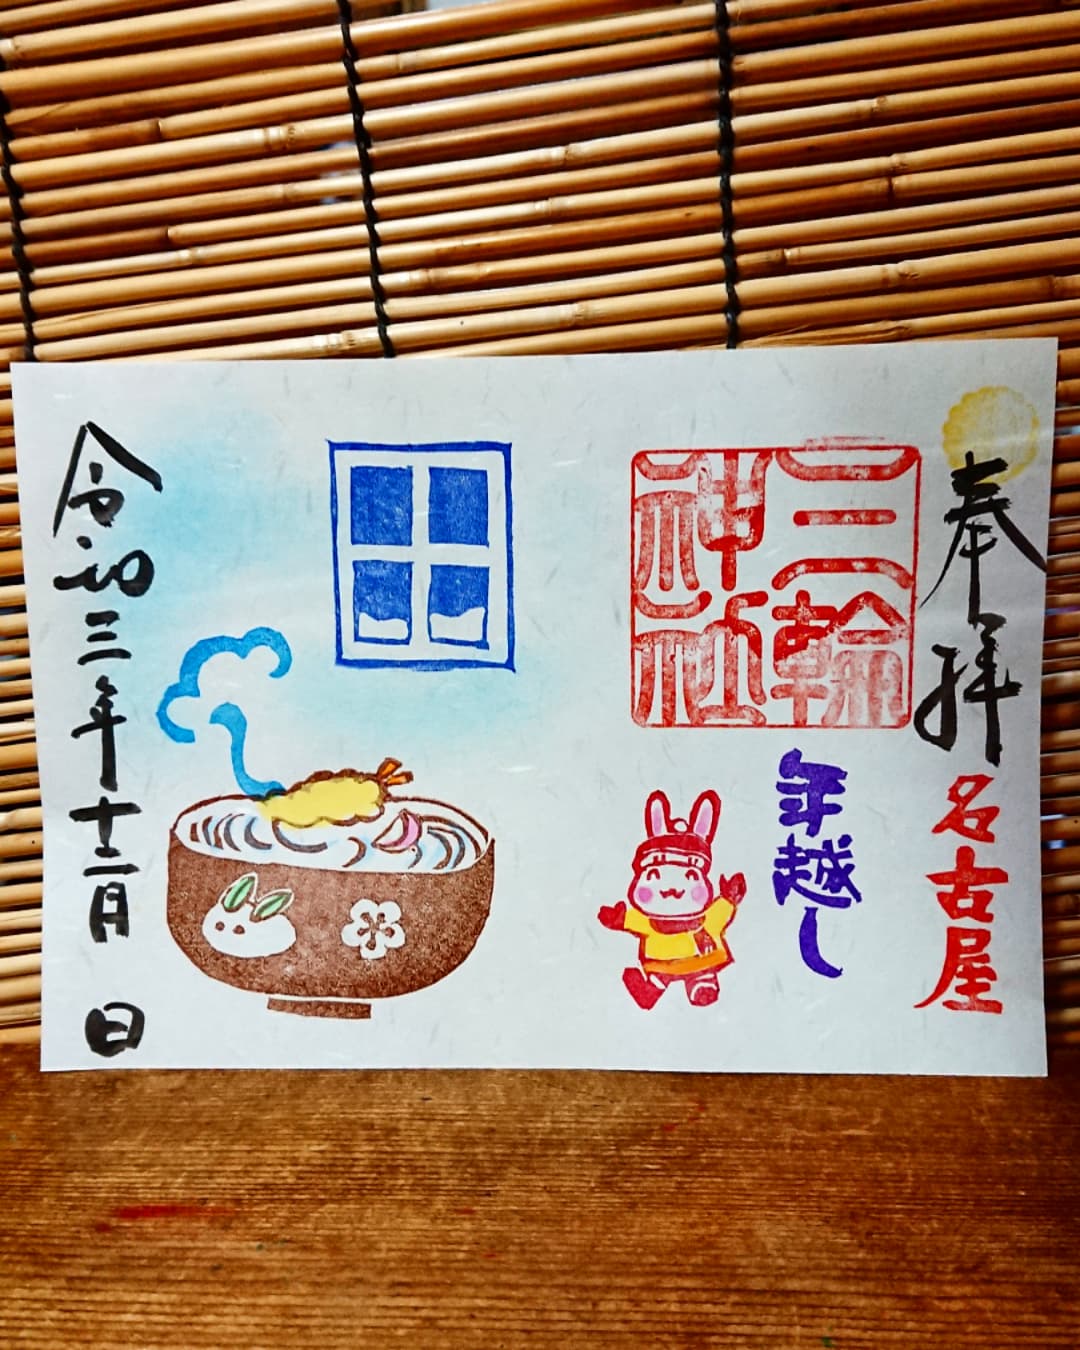 奉拝
名古屋
三輪神社
年越し
令和三年十二月 日